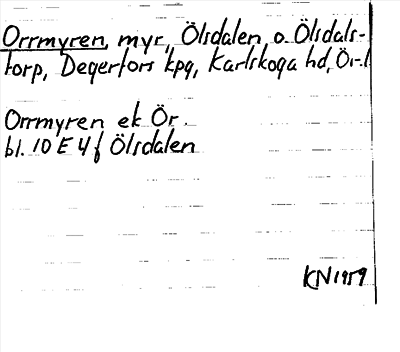 Orrmyren, myr, Ölsdalen, o. Ölsdals-
torp, Degerfors kpg, Karlskoga hd, Ör. l.
Orrmyren ek Ör.
bl. 10 E 4 f Ölsdalen
KN 1959